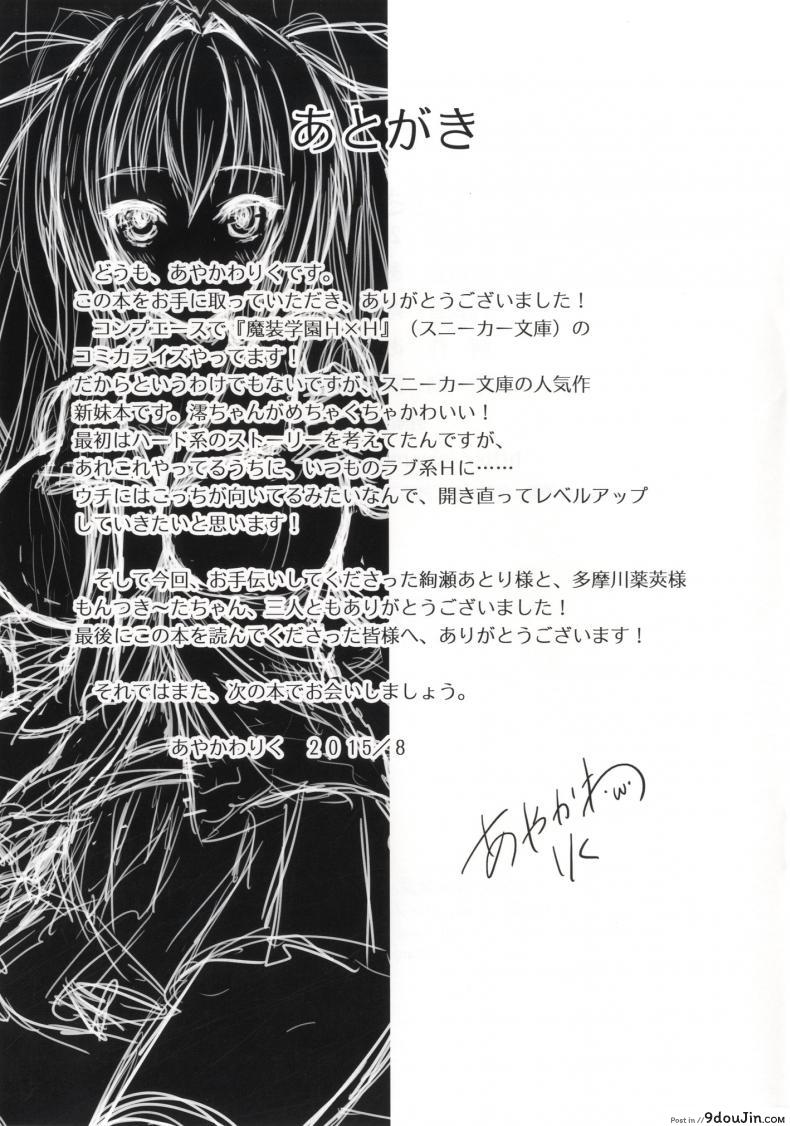 あとがき
どうも、あやかわりくです。
この本をお手に取っていただき、ありがとうございました！
コンプエースで『魔装学園H×H』（スニーカー文庫）の
コミカライズやってます！
だからというわけでもないですが、スニーカー文庫の人気作
新妹本です。澪ちゃんがめちゃくちゃかわいい！
最初はハード系のストーリーを考えてたんですが、
あれこれやってるうちに、いつものラブ系Hに……
ウチにはこっちが向いてるみたいなんで、開き直ってレベルアップ
していきたいと思います！
そして今回、お手伝いしてくださった絢瀬あとり様と、多摩川薬莢様
もんつき～たちゃん、三人ともありがとうございました！
最後にこの本を読んでくださった皆様へ、ありがとうございます！
それではまた、次の本でお会いしましょう。
あやかわりく　2015／8
あやかわ
りく
Post in // 9douJin.com